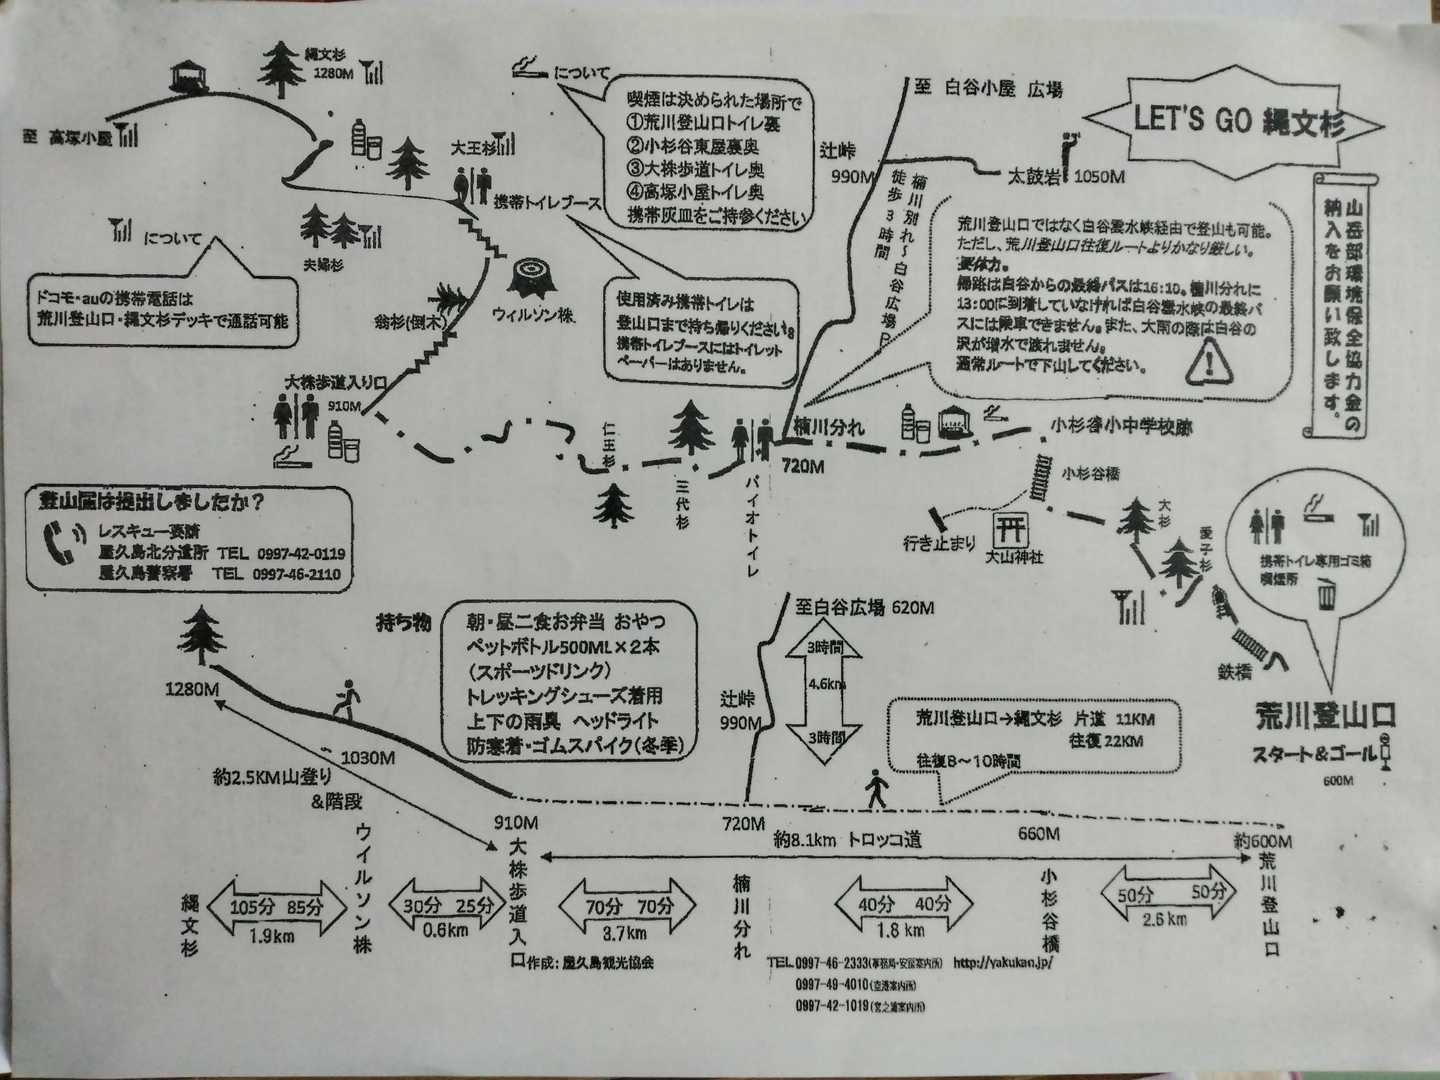 LET'S GO 縄文杉
縄文杉
1280M
至 高塚小屋
大王杉
携帯トイレブース
夫婦杉
について
ドコモ・auの携帯電話は
荒川登山口・縄文杉デッキで通話可能
翁杉(倒木)
ウィルソン株
大株歩道入り口
910M
について
喫煙は決められた場所で
①荒川登山口トイレ裏
②小杉谷東屋裏奥
③大株歩道トイレ奥
④高塚小屋トイレ奥
携帯灰皿をご持参ください
使用済み携帯トイレは
登山口まで持ち帰りください。
携帯トイレブースにはトイレット
ペーパーはありません。
至 白谷小屋 広場
辻峠
990M
太鼓岩 1050M
楠川別れ～白谷広場P
徒歩3時間
荒川登山口ではなく白谷雲水峡経由で登山も可能。
ただし、荒川登山口往復ルートよりかなり厳しい。
要体力。
帰路は白谷からの最終バスは16:10。楠川分れに
13:00に到着していなければ白谷雲水峡の最終バ
スには乗車できません。また、大雨の際は白谷の
沢が増水で渡れません。
通常ルートで下山してください。
山岳部環境保全協力金の
納入をお願い致します。
仁王杉
三代杉
バイオトイレ
楠川分れ
720M
小杉谷小中学校跡
小杉谷橋
行き止まり
大山神社
大杉
愛子杉
鉄橋
携帯トイレ専用ゴミ箱
喫煙所
荒川登山口
スタート&ゴール
600M
登山届は提出しましたか?
レスキュー要請
屋久島北分遣所 TEL 0997-42-0119
屋久島警察署 TEL 0997-46-2110
持ち物
朝・昼二食お弁当 おやつ
ペットボトル500ML×2本
(スポーツドリンク)
トレッキングシューズ着用
上下の雨具 ヘッドライト
防寒着・ゴムスパイク(冬季)
至白谷広場 620M
3時間
4.6km
3時間
辻峠
990M
荒川登山口→縄文杉 片道 11KM
往復22KM
往復8～10時間
1280M
1030M
約2.5KM山登り
&階段
910M
720M
約8.1km トロッコ道
660M
約600M
縄文杉
105分 85分
1.9km
ウイルソン株
30分 25分
0.6km
大株歩道入口
70分 70分
3.7km
楠川分れ
40分 40分
1.8 km
小杉谷橋
50分 50分
2.6 km
荒川登山口
作成:屋久島観光協会
TEL 0997-46-2333(事務局・安房案内所) http://yakukan.jp/
0997-49-4010(空港案内所)
0997-42-1019(宮之浦案内所)